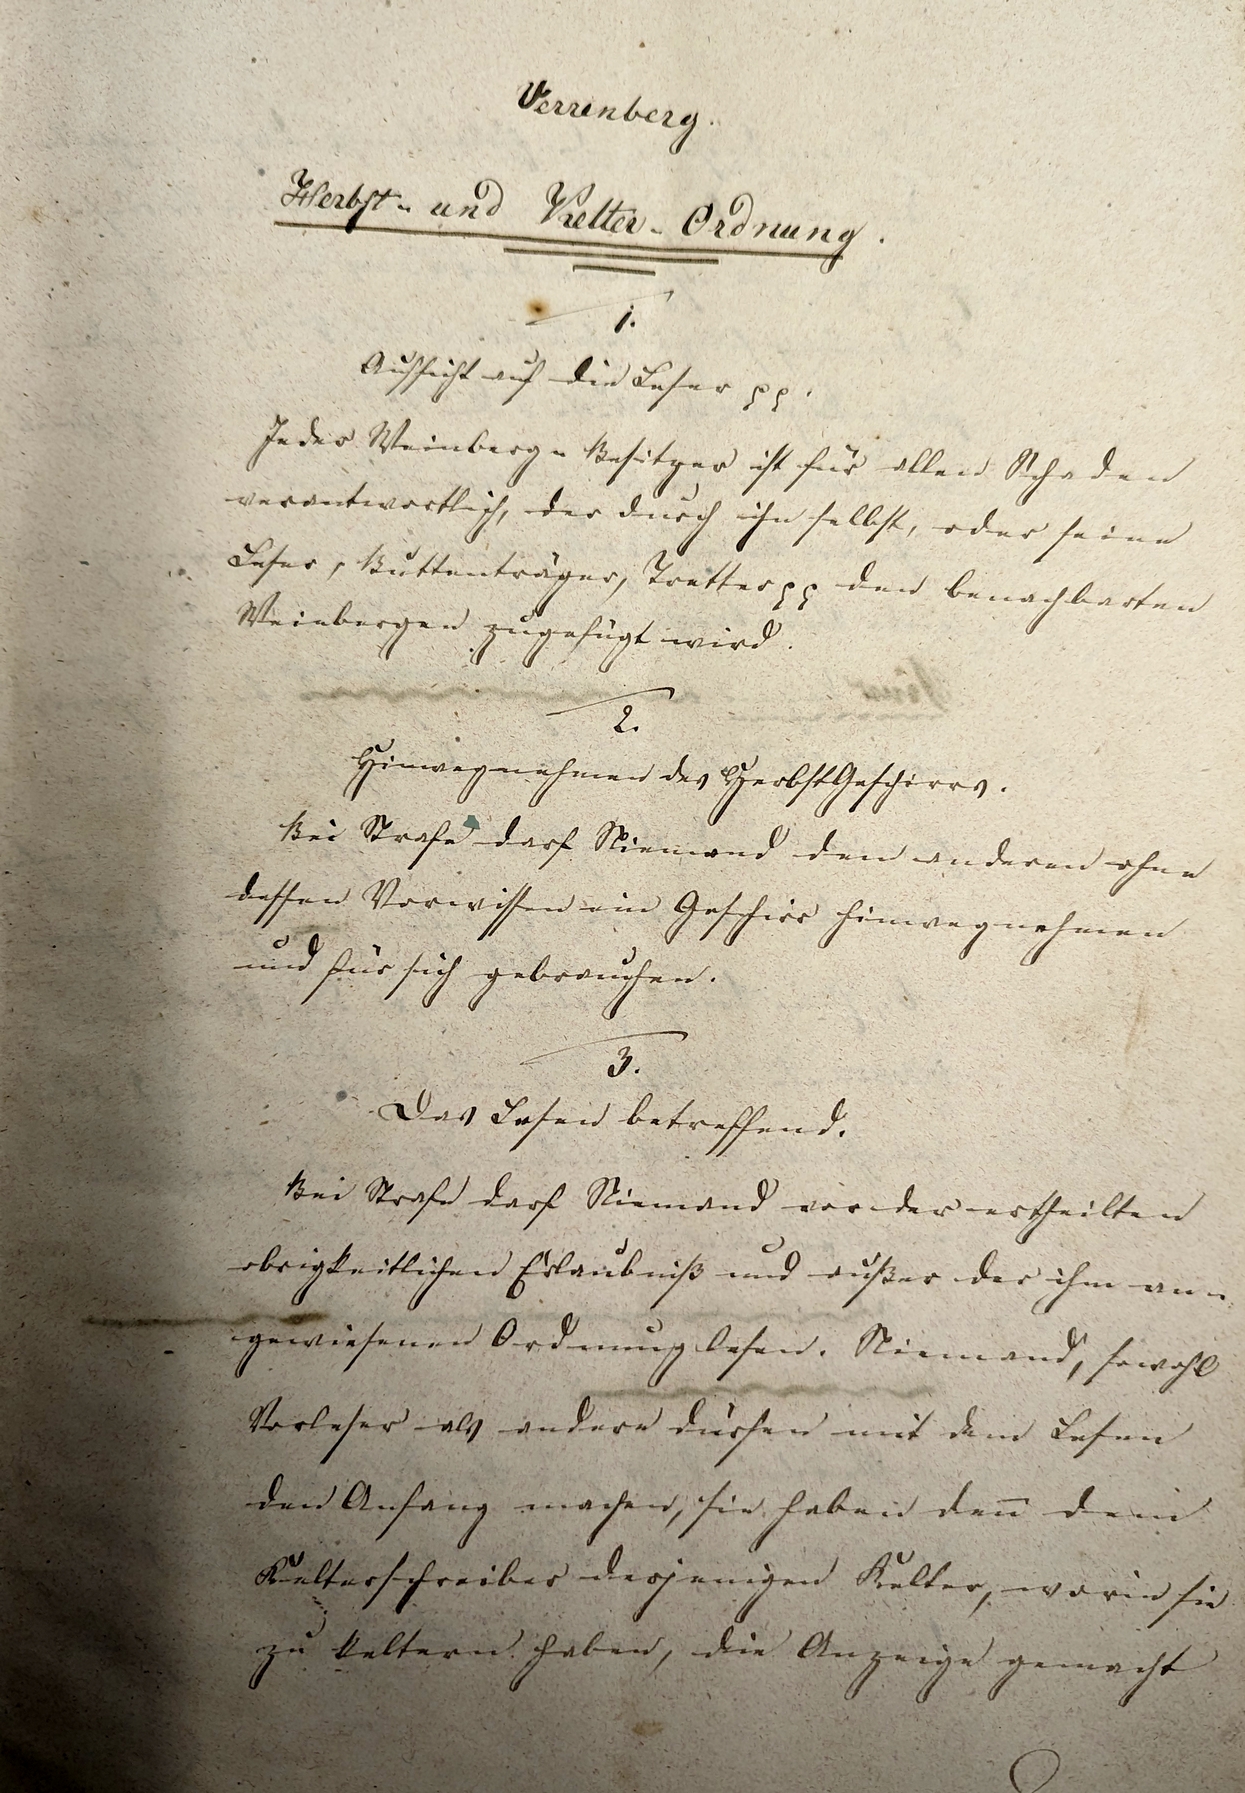 Verrenberg.
Herbst- und Kelter-Ordnung.
1.
Aufsicht auf die Leser pp.
Jeder Weinberg-Besitzer ist für allen Schaden
verantwortlich, der durch ihn selbst, oder seine
Leser, Buttenträger, Tretter pp den benachbarten
Weinbergen zugefügt wird.
2.
Hinwegnehmen des HerbstGeschirrs.
Bei Strafe darf Niemand dem anderen ohne
dessen Vorwissen ein Geschirr hinwegnehmen
und für sich gebrauchen.
3.
Das Lesen betreffend.
Bei Strafe darf Niemand vor der ertheilten
obrigkeitlichen Erlaubniß und außer der ihm an-
gewiesenen Ordnung lesen. Niemand, sowohl
Vorleser als andere dürfen mit dem Lesen
den Anfang machen, sie haben den̅ dem
Kelterschreiber derjenigen Kelter, worin sie
zu keltern haben, die Anzeige gemacht